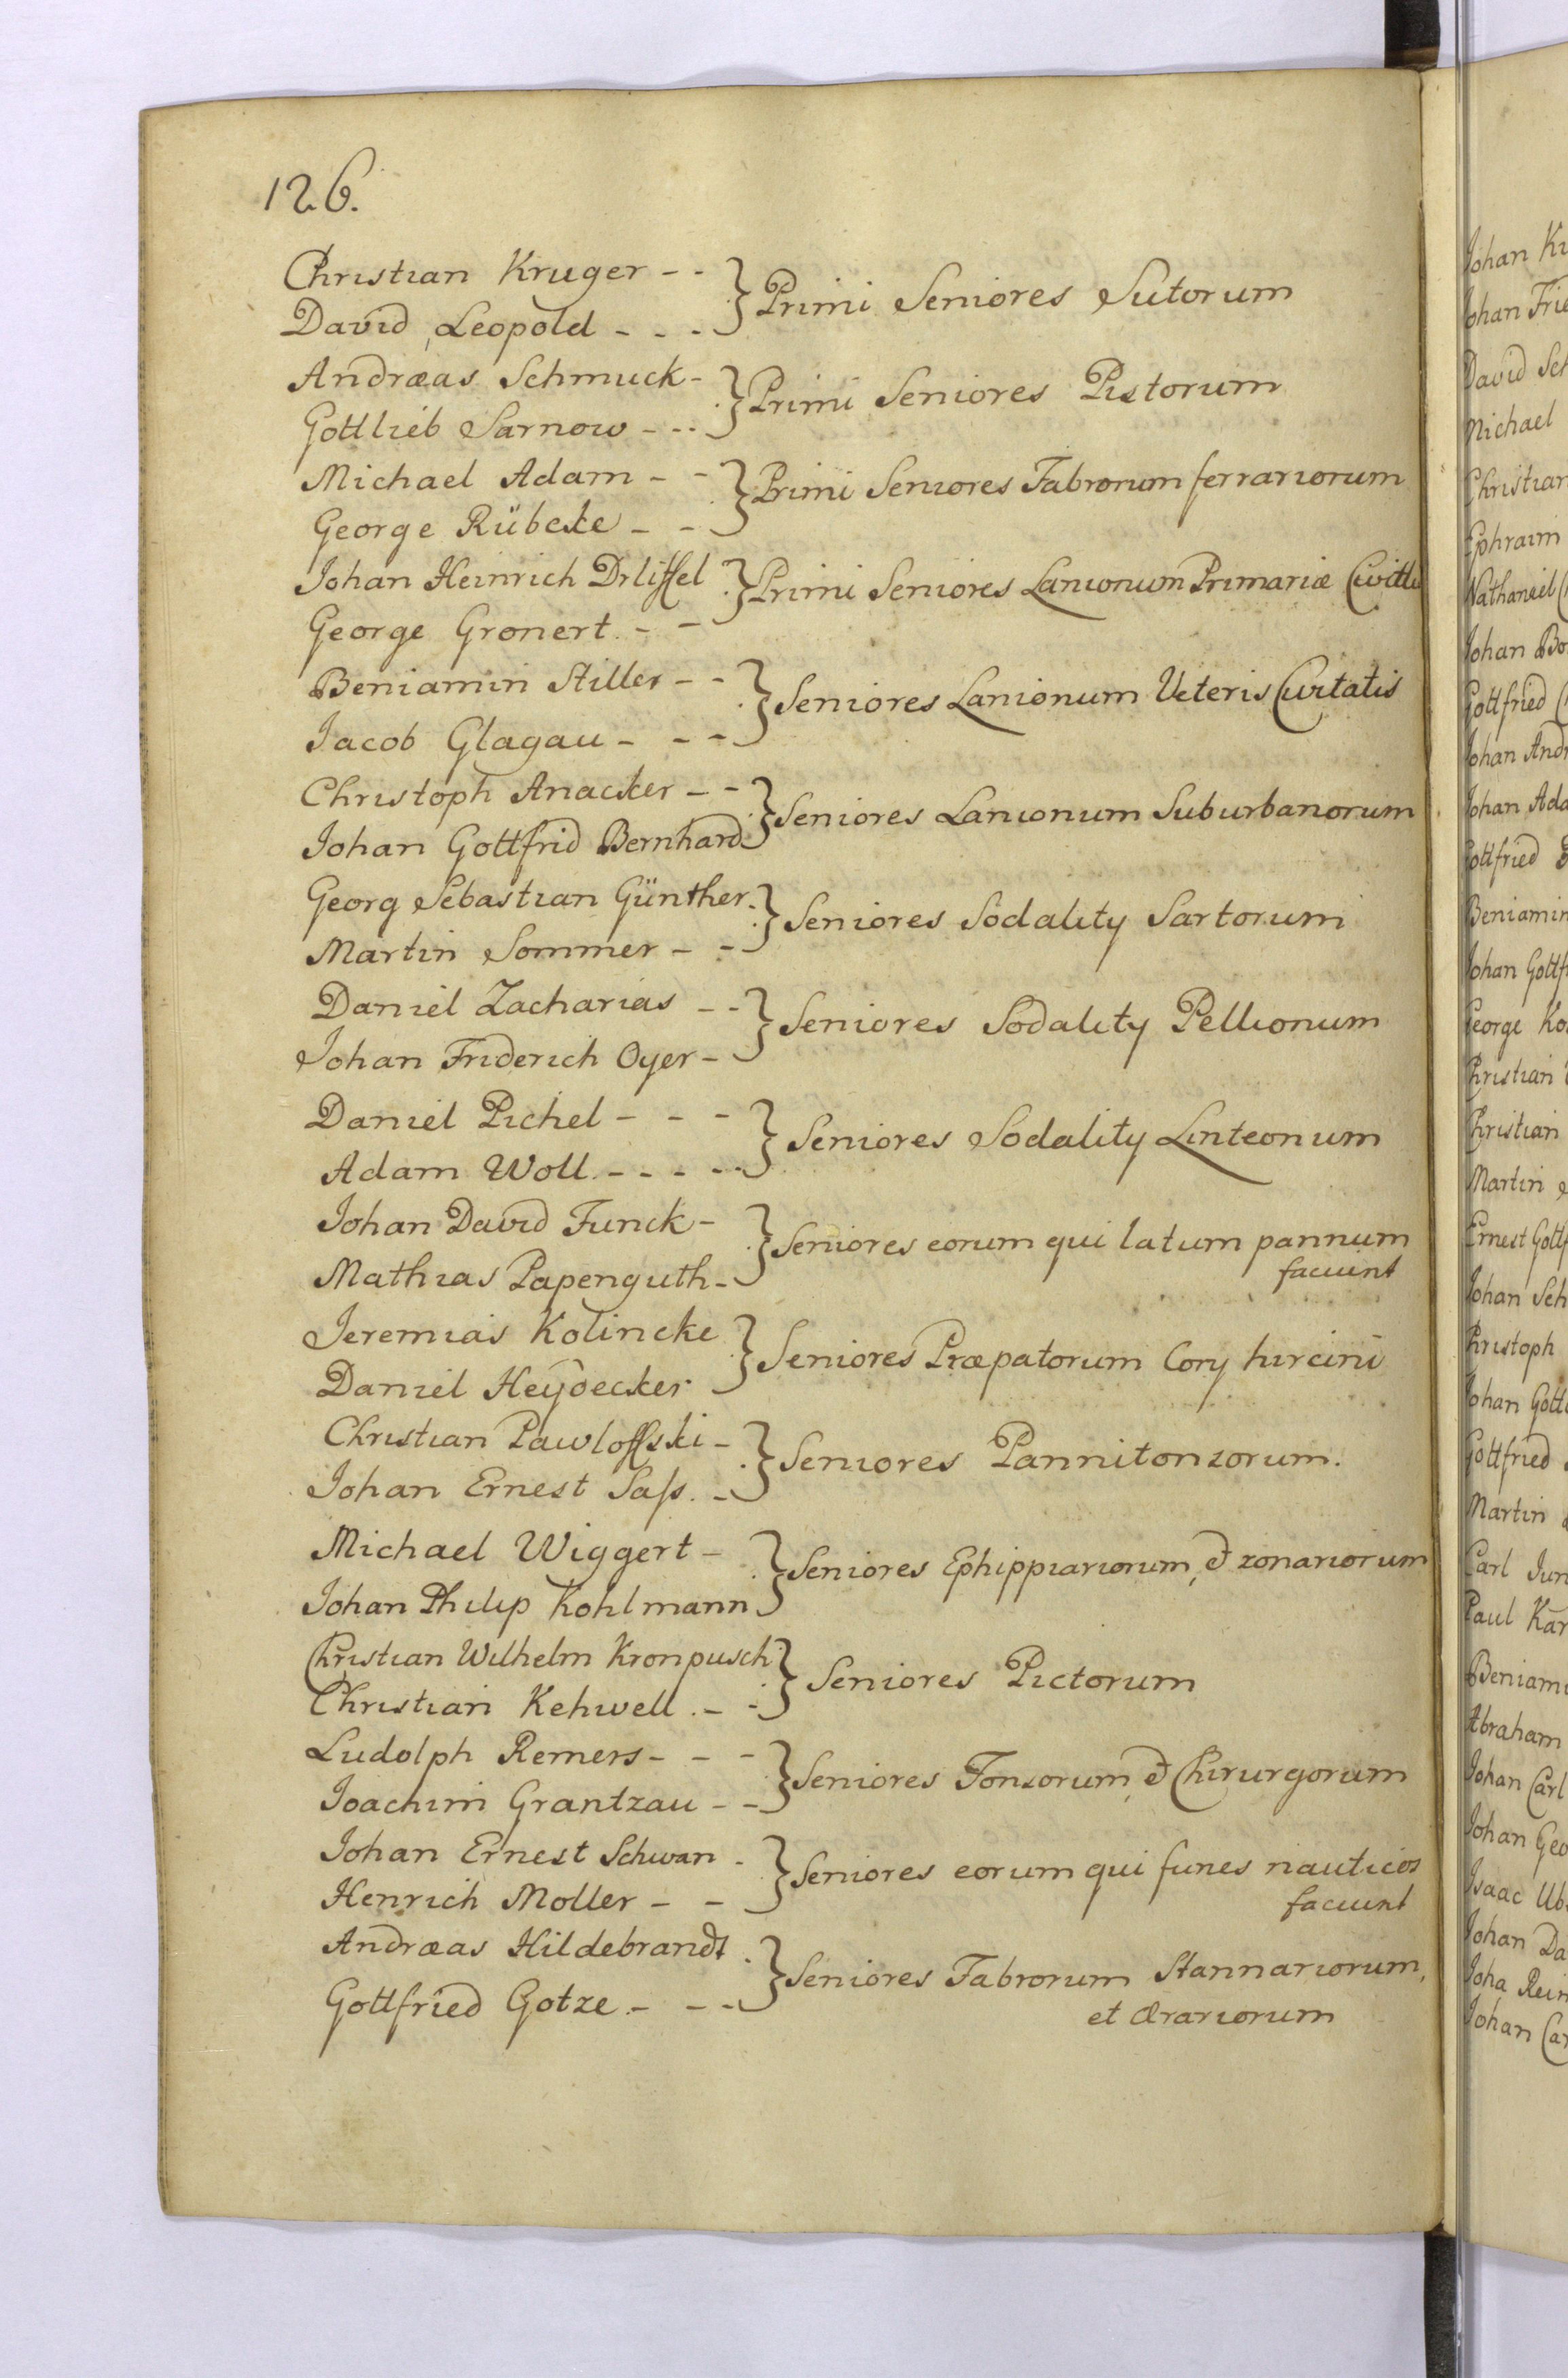 126.
Christian Kruger - - } Primi Seniores Sutorum
David Leopold - - -
Andræas Schmuck - } Primi Seniores Pistorum
Gottlieb Sarnow - - -
Michael Adam - - } Primi Seniores Fabrorum ferrariorum
George Rübcke - -
Johan Heinrich Drliffel } Primi Seniores Lanionum Primariæ
George Gronert. - -
Beniamin Stiller - - } Seniores Lanionum Veteris Civitatis
Jacob Glagau - - -
Christoph Anacker - - } Seniores Lanionum Suburbanorum
Johan Gottfrid Bernhard
Georg Sebastian Günther. } Seniores Sodality Sartorum
Martin Sommer - -
Daniel Zacharias - - } Seniores Sodality Pellionum
Johan Friderich Oyer -
Daniel Pichel - - - } Seniores Sodality Linteonum
Adam Woll. - - - - -
Johan David Funck - } Seniores eorum qui latum pannum
faciunt
Mathias Papenguth -
Jeremias Kolincke } Seniores Præpatorum Cory hircini
Daniel Heydecker
Christian Pawloffski - } Seniores Pannitonsorum.
Johan Ernest Sass. -
Michael Wiggert - } Seniores Ephippiariorum, & zonariorum
Johan Philip Kohlmann
Christian Wilhelm Kronpusch } Seniores Pictorum
Christian Kehwell. - -
Ludolph Remers - - - } Seniores Tonsorum, & Chirurgorum
Joachim Grantzau - -
Johan Ernest Schwan - } Seniores eorum qui funes nauticos
faciunt
Henrich Moller - -
Andræas Hildebrandt } Seniores Fabrorum Stannariorum,
et Ærariorum
Gottfried Gotze. - - -
Johan
Johan
David
Michael
Christian
Ephraim
Nathaneel
Johan
Gottfried
Johan
Johan
Gottfried
Beniamin
Johan
George
Christian
Christian
Martin
Ernest
Johan
Christoph
Johan
Gottfried
Martin
Carl
Paul
Abraham
Johan Carl
Johan
Isaac
Johan
Joha
Johan